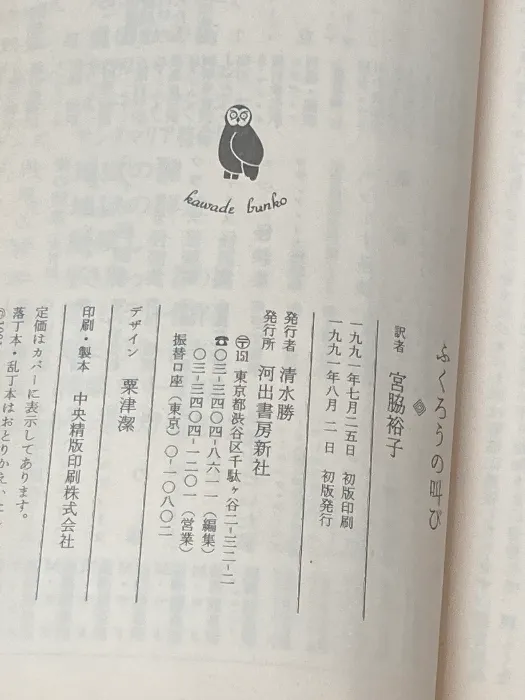 kawade bunko
ふくろうの叫び
訳者 宮脇裕子
一九九一年七月二五日 初版印刷
一九九一年八月二日 初版発行
発行者 清水勝
発行所 河出書房新社
〒151 東京都渋谷区千駄ヶ谷二-三二-二
☎〇三-三四〇四-八六一一(編集)
〇三-三四〇四-一二〇一(営業)
振替口座(東京)〇-一〇八〇二
デザイン 粟津潔
印刷・製本 中央精版印刷株式会社
定価はカバーに表示してあります。
落丁本・乱丁本はおとりかえいた